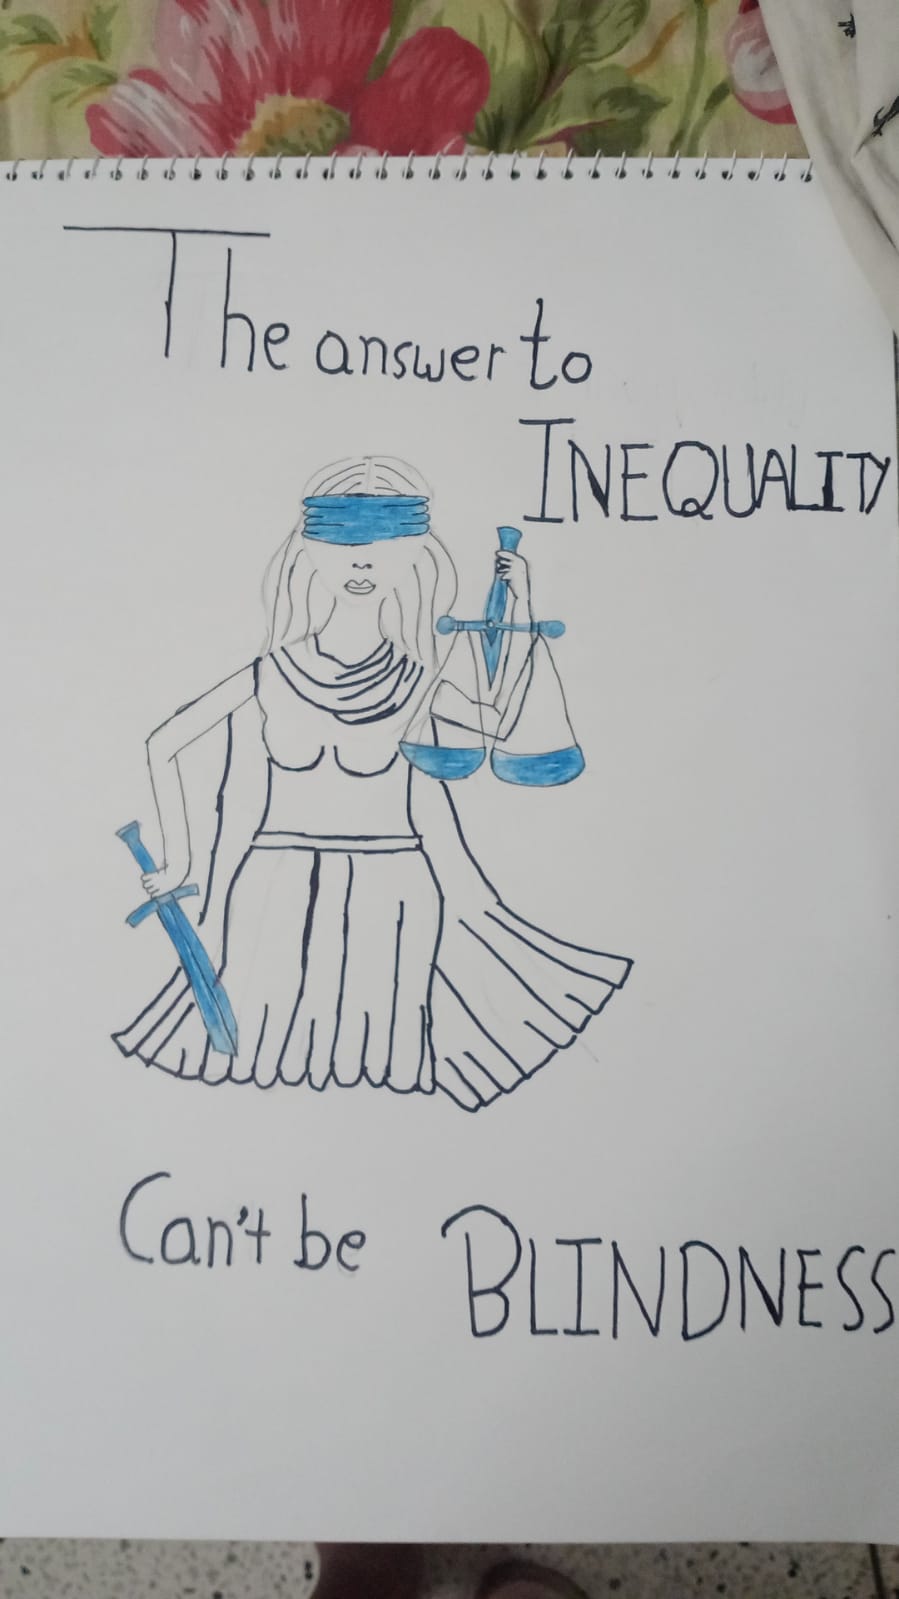 The answer to
INEQUALITY
Can't be BLINDNESS